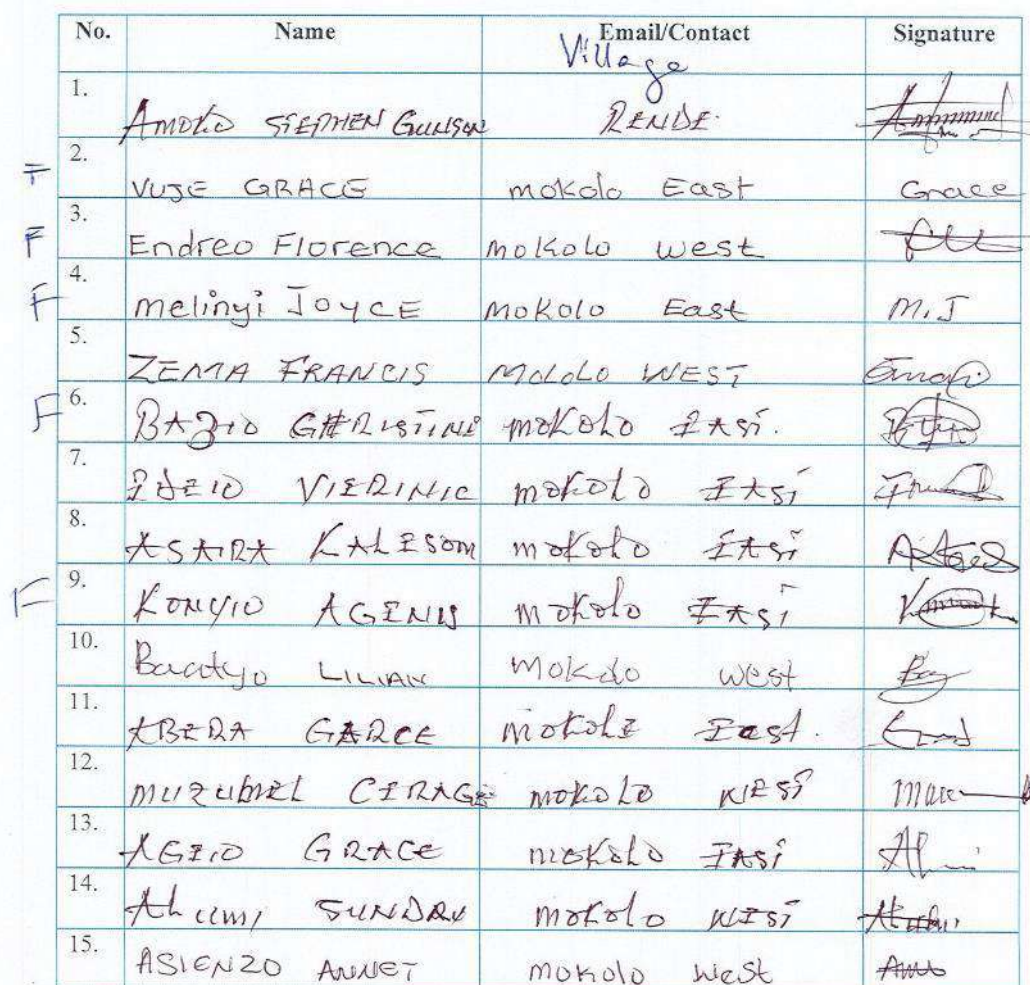 No. Name Email/Contact Signature
Village
1. Amoko STEPHEN GUNSON RENDE.
F 2. VUJE GRACE mokolo East Grace
F 3. Endreo Florence mokolo west
F 4. melinyi JOYCE mokolo East M.J
5. ZEMA FRANCIS MOLOLO WEST
F 6. BAZIO mokolo EAST.
7. VIERINIC mokolo EAST
8. ASAIRA KALESOM mokolo EAST
F 9. KONYIO AGENIS mokolo EAST
10. LILIAN Mokolo west
11. ABERA GARCE mokole East.
12. mokolo WEST
13. AGEIO GRACE mokolo EAST
14. SUNDAY mokolo WEST
15. ASIENZO ANNET mokolo west